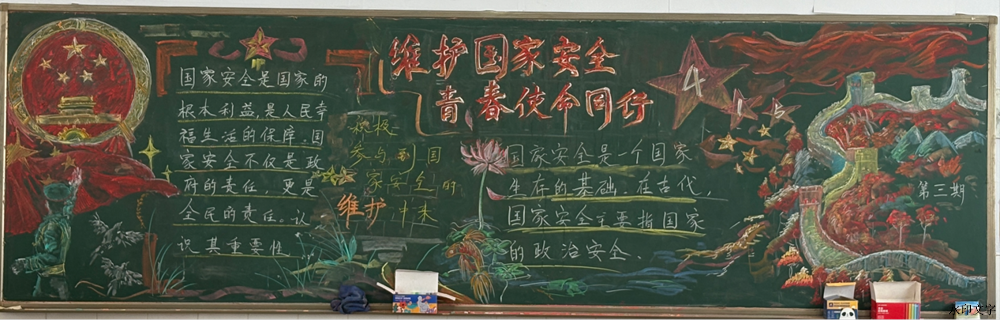 维护国家安全
青春使命同行
国家安全是国家的
根本利益,是人民幸
福生活的保障。国
家安全不仅是政
府的责任,更是
全民的责任。认
识其重要性
积极
参与到国
家安全的
维护中来
国家安全是一个国家
生存的基础。在古代,
国家安全主要指国家
的政治安全、
415
第三期
水印文字